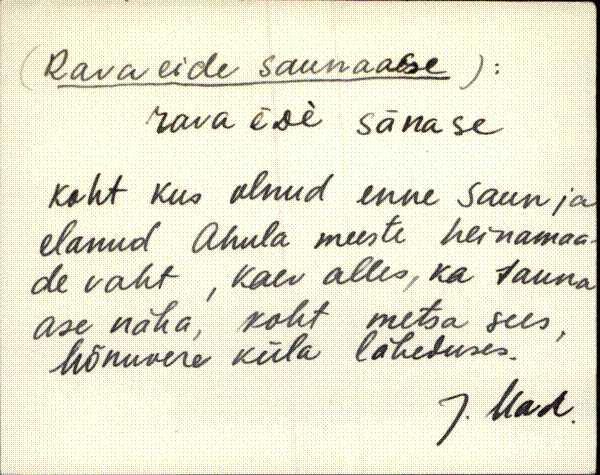 (Rava eide saunaase):
rava ēDè sānase
koht kus olnud enne saun ja
elanud Ahula meeste heinamaa-
de vaht, kaev alles, ka sauna
ase näha, koht metsa sees,
Lõnuvere küla läheduses.
J. Mad.